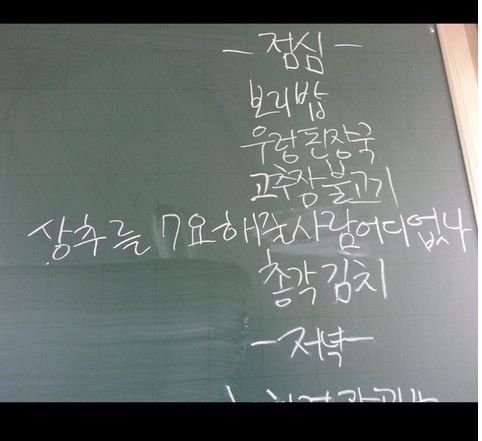 - 점심 -
보리밥
우렁된장국
고추장불고기
상추를 7요해준사람어디없나
총각김치
- 저녁 -